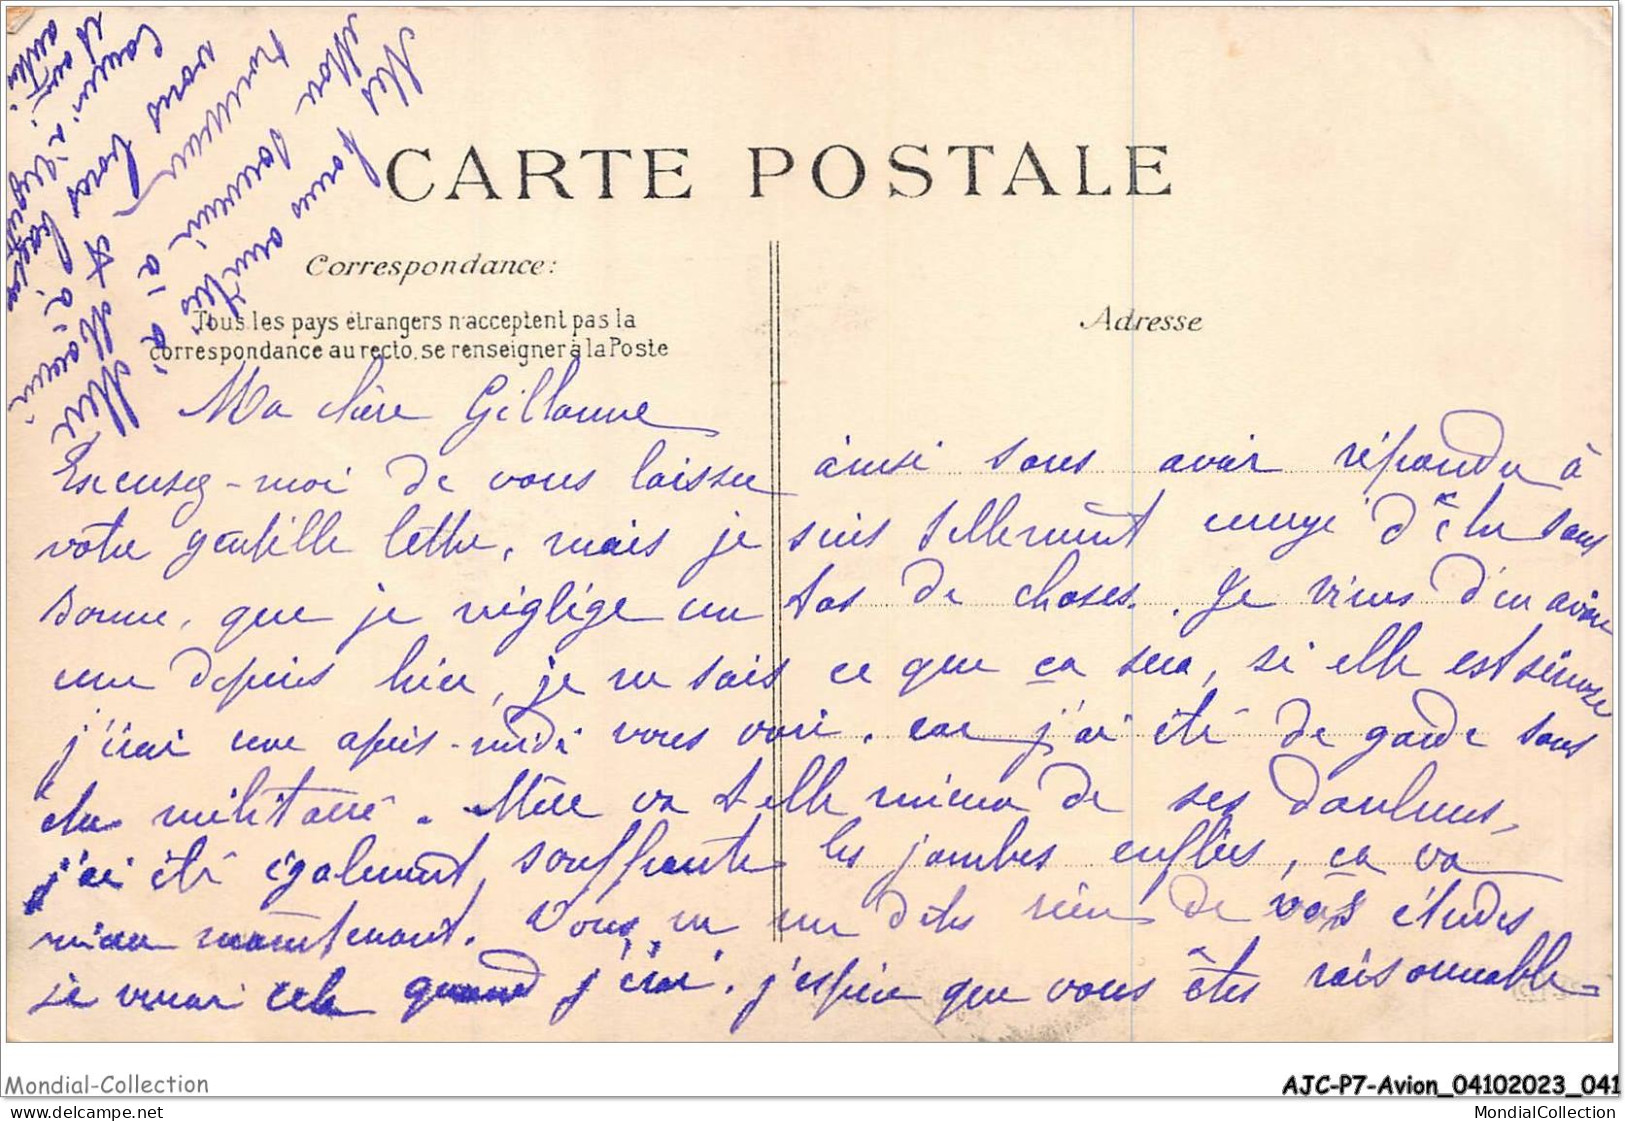 CARTE POSTALE
Correspondance:
Tous les pays étrangers n'acceptent pas la
correspondance au recto, se renseigner à la Poste
Adresse
Ma chère
Excusez-moi de vous laisser ainsi sans avoir répondu à
votre gentille lettre, mais je suis tellement ennuyé d'être sans
bonne, que je néglige un tas de choses. Je viens d'en avoir
une depuis hier, je ne sais ce que ça sera, si elle est sérieuse
j'irai une après-midi vous voir, car j'ai été de garde sans
être militaire. Mère va t-elle mieux de ses douleurs,
j'ai été également souffrante les jambes enflées, ça va
mieux maintenant. Vous ne me dites rien de vos études
je verrai cela quand j'irai. j'espère que vous êtes raisonnable=
Mes bonnes amitiés à
Mon souvenir à
vous bons
Mondial-Collection
AJC-P7-Avion_04102023_041
MondialCollection